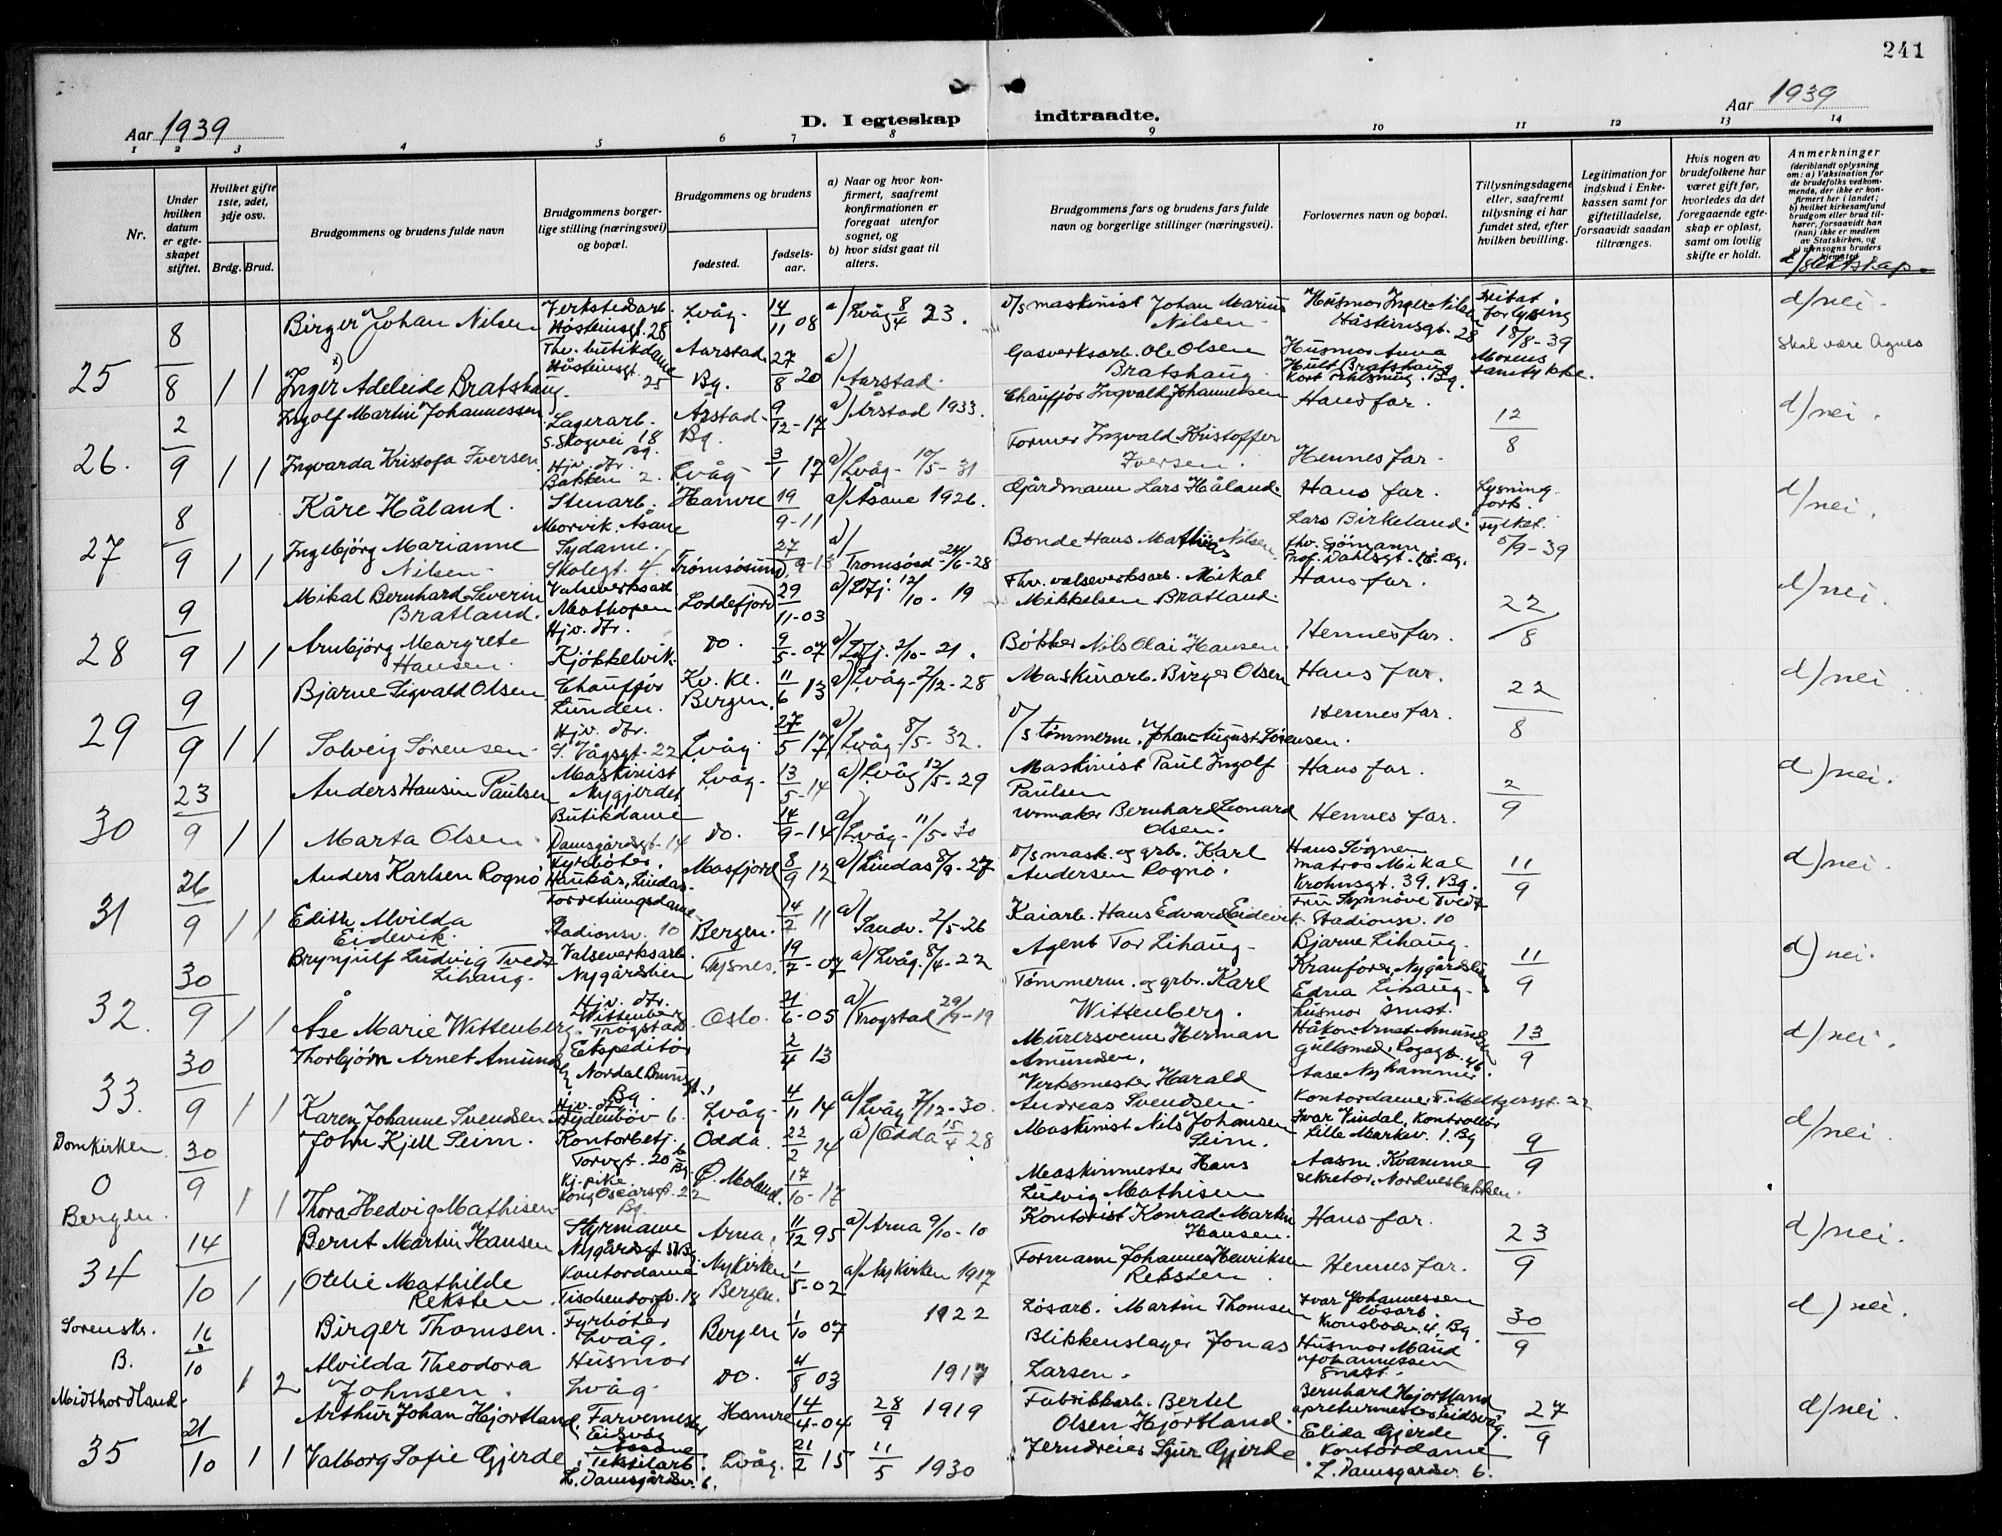 241
Aar 1939
D. I egteskap indtraadte.
Aar 1939
1 2 3 4 5 6 7 8 9 10 11 12 13 14
Nr.
Under hvilken datum er egteskapet stiftet.
Hvilket gifte 1ste, 2det, 3dje osv.
Brdg. Brud.
Brudgommens og brudens fulde navn
Brudgommens borgerlige stilling (næringsvei) og bopæl.
Brudgommens og brudens
fødested.
fødselsaar.
a) Naar og hvor konfirmert, saafremt konfirmationen er foregaat utenfor sognet, og
b) hvor sidst gaat til alters.
Brudgommens fars og brudens fars fulde navn og borgerlige stillinger (næringsvei).
Forlovernes navn og bopæl.
Tillysningsdagene eller, saafremt tillysning ei har fundet sted, efter hvilken bevilling.
Legitimation for indskud i Enkekassen samt for giftetilladelse, forsaavidt saadan tiltrænges.
Hvis nogen av brudefolkene har været gift før, hvorledes da det foregaaende egteskap er opløst, samt om lovlig skifte er holdt.
Anmerkninger
(deriblandt oplysning om: a) Vaksination for de brudefolks vedkommende, der ikke er konfirmert her i landet; b) hvilket kirkesamfund brudgom eller brud tilhører, forsaavidt han (hun) ikke er medlem av Statskirken, og
d/slektskap.
25 8/8 1 1
Birger Johan Nilsen Verkstedarb. Håsteinsgt. 28 Lvåg 14/11 08 a) Lvåg 8/4 23.
d/s maskinist Johan Marius Nilsen Husmor Inger Nilsen Håsteinsgt. 28 18/8-39 d/nei
Inger Adeleide Bratshaug. Fhv. butikdame Håsteinsgt. 25 Aarstad. Bg. 27/8 20 a) Aarstad.
Gasverksarb. Ole Olsen Bratshaug Husmor Anna Hult Bratshaug Bg. Skal være Agnes
26. 2/9 1 1
Ingolf Martin Johannessen Lagerarb. S. Skogvei 18 Bg. Årstad Bg. 9/12-17 a) Årstad 1933.
Chauffør Ingvald Johannessen Hans far. 12/8 d/nei.
Ingvarda Kristofa Iversen Hjv. dtr. Bakken 2. Lvåg 3/1 17 a) Lvåg 10/5-31
Former Ingvald Kristoffer Iversen. Hennes far.
27 8/9 1 1
Kåre Håland. Stenarb. Morvik Åsane Hamre 19/9-11 a) Åsane 1926.
Gårdmann Lars Håland. Hans far. Lysning 5/9-39 d/nei.
Ingebjørg Marianne Nilsen Sydame. Skolegt. 4 Tromsøsund 27/9-13 a) Tromsøsd 24/6-28
Bonde Hans Mathias Nilsen Lars Birkeland. Prof. Dahlsgt. Bg.
28 9/9 1 1
Mikal Bernhard Severin Bratland. Valseverksarb Mathopen Loddefjord 29/11-03 a) Ldfj. 12/10. 19
Fhv. valseverksarb. Mikal Mikkelsen Bratland. Hans far. 22/8 d/nei.
Arnbjørg Margrete Hansen Hjv. dtr. Kjøkkelvik Do. 9/5-07 a) Ldfj. 2/10-21.
Bøkker Nils Olai Hansen Hennes far.
29 9/9 1 1
Bjarne Sigvald Olsen Chauffør Lunden. Kv. Kl. Bergen 11/6 13 a) Lvåg 2/12-28
Maskinarb. Birger Olsen Hans far. 22/8 d/nei
Solveig Sørensen Hjv. dtr. S. Vågsgt. 22 Lvåg 27/5 17 a) Lvåg 8/5-32.
d/s tømmerm. Johan August Sørensen. Hennes far.
30 23/9 1 1
Anders Hansin Paulsen Maskinist Nygjerdet Lvåg 13/5-14 a) Lvåg 12/5-29
Maskinist Paul Ingolf Paulsen Hans far. 2/9 d)nei.
Marta Olsen Butikdame Damsgårdsgt. 14 Do. 14/9-14 a) Lvåg 11/5-30
Urmaker Bernhard Leonard Olsen. Hennes far.
31 26/9 1 1
Anders Karlsen Rognø Fyrbøter. Haukås, Lindås Masfjord 8/9 12 a) Lindås 8/9-27
d/s mask. og grb. Karl Andersen Rognø. Hans Søgnen matros Mikal Krohnsgt. 39. Bg. 11/9 d/nei.
Edith Alvilda Eidevik Forretningsdame Stadionsv. 10 Bergen. 14/2 11 a) Sandv. 2/5-26
Kaiarb. Hans Edvard Eidevik Fru Synnøve Tvedt Stadionsv. 10
32. 30/9 1 1
Brynjulf Ludvig Tvedt Lihaug. Valseverksarb. Nygårdslien Tysnes. 19/7-07 a) Lvåg. 8/4-22
Agent Tor Lihaug Bjarne Lihaug. Kranfører, Nygårdslien 11/9 d)nei.
Åse Marie Wittenberg Hjv. dtr. Wittenberg Trøgstad Oslo. 21/6-05 a) Trøgstad 29/9-19
Tømmerm. og grbr. Karl Wittenberg. Edna Lihaug husmor smst.
33. 30/9 1 1
Thorbjørn Arnet Amundsen Ekspeditør Nordal Brunsgt. 1 Bg. 2/4 13
Murersvenn Herman Amundsen. Håkon Arnet Amundsen gullsmed, 46 13/9 d/nei.
Karen Johanne Svendsen Hjv. dtr. Lydenbøv 6. Lvåg 4/11 14 a) Lvåg 7/12-30.
Verksmester Harald Andreas Svendsen Aase Nyhammer Kontordame F. Meltzersgt. 22
Domkirken O Bergen. 30/9 1 1
John Kjell Seim. Kontorbetj. Torvgt. 20 b Bg. Odda. 22/2 14 a) Odda 15/4 28
Maskinist Nils Johansen Seim. Ivar Vindal, Kontrollør Lille Markev. 1. Bg 9/9 d/nei.
Thora Hedvig Mathisen Kj. pike Kong Oscarsgt. 22 Bg. Ø. Moland. 17/10-17
Maskinmester Hans Ludvig Mathisen Aasm. Kvamme sekretær, Nordnesbakken.
34 14/10 1 1
Bernt Martin Hansen Styrmann Nygårdsgt. Arna. 11/12 95 a) Arna 9/10-10
Kontorist Konrad Martin Hansen. Hans far. 23/9 d/nei.
Otelie Mathilde Reksten Kontordame Tischendorfv. 18 Nykirken Bergen. 1/5-02 a) Nykirken 1917
Formann Johannes Henriksen Reksten Hennes far.
Sorenskr. B. Midthordland. 16/10 1 2
Birger Thomsen. Fyrbøter Lvåg. Bergen 1/10 07 1922
Løsarb. Martin Thomsen Ivar Johannessen løsarb. Bg. 30/9 d) nei.
Alvilda Theodora Johnsen. Husmor Lvåg. Do. 4/8 03 1917
Blikkenslager Jonas Larsen. Husmor Maud Johannessen smst.
35 21/10 1 1
Arthur Johan Hjortland Farvemester Eidsvåg Aasane Hamre 14/4-04 28/9 1919
Fabrikkarb. Bertel Olsen Hjortland. Bernhard Hjortland apreturmester Eidsvåg. 27/9 d/nei.
Valborg Sofie Gjerde Tekstilarb. L. Damsgårdsv. 6. Lvåg. 21/2 15 11/5 1930
Jerndreier Sjur Gjerde Elida Gjerde Kontordame L. Damsgårdsv. 6.